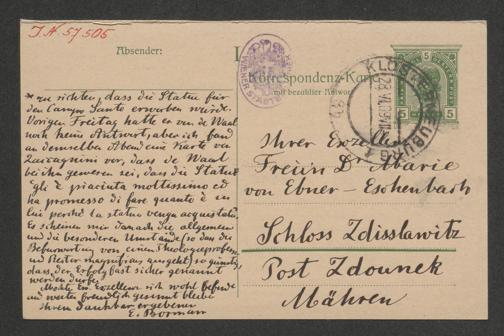 I.N. 57.505
Absender:
Korrespondenz-Karte
mit bezahlter Antwort
5 5
KLOSTERNEUBURG
zu richten, dass die Statue für
den Campo Santo erworben würde.
Vorigen Freitag hatte er von de Waal
noch keine Antwort, aber ich fand
an demselben Abend eine Karte von
vor, dass de Waal
bei ihm gewesen sei, dass die Statue
egli è piaciuta moltissimo ed
ha promesso di fare quanto è in
lui perchè la statua venga acquistata.
Es scheinen mir danach die allgemeinen
und die besonderen Umstände (so dan die
Befürwortung von einem Theologieprofessor
und Rector magnificus ausgeht) so günstig,
dass der Erfolg fast sicher genannt
werden dürfte.
Möchte Eu. Exzellenz sich wohl befinden
und weiter freundlich gesinnt bleiben
Ihrem dankbar ergebenen
E. Bormann
Ihrer Exzellenz
Freiin Dr Marie
von Ebner-Eschenbach
Schloss Zdisslawitz
Post Zdounek
Mähren